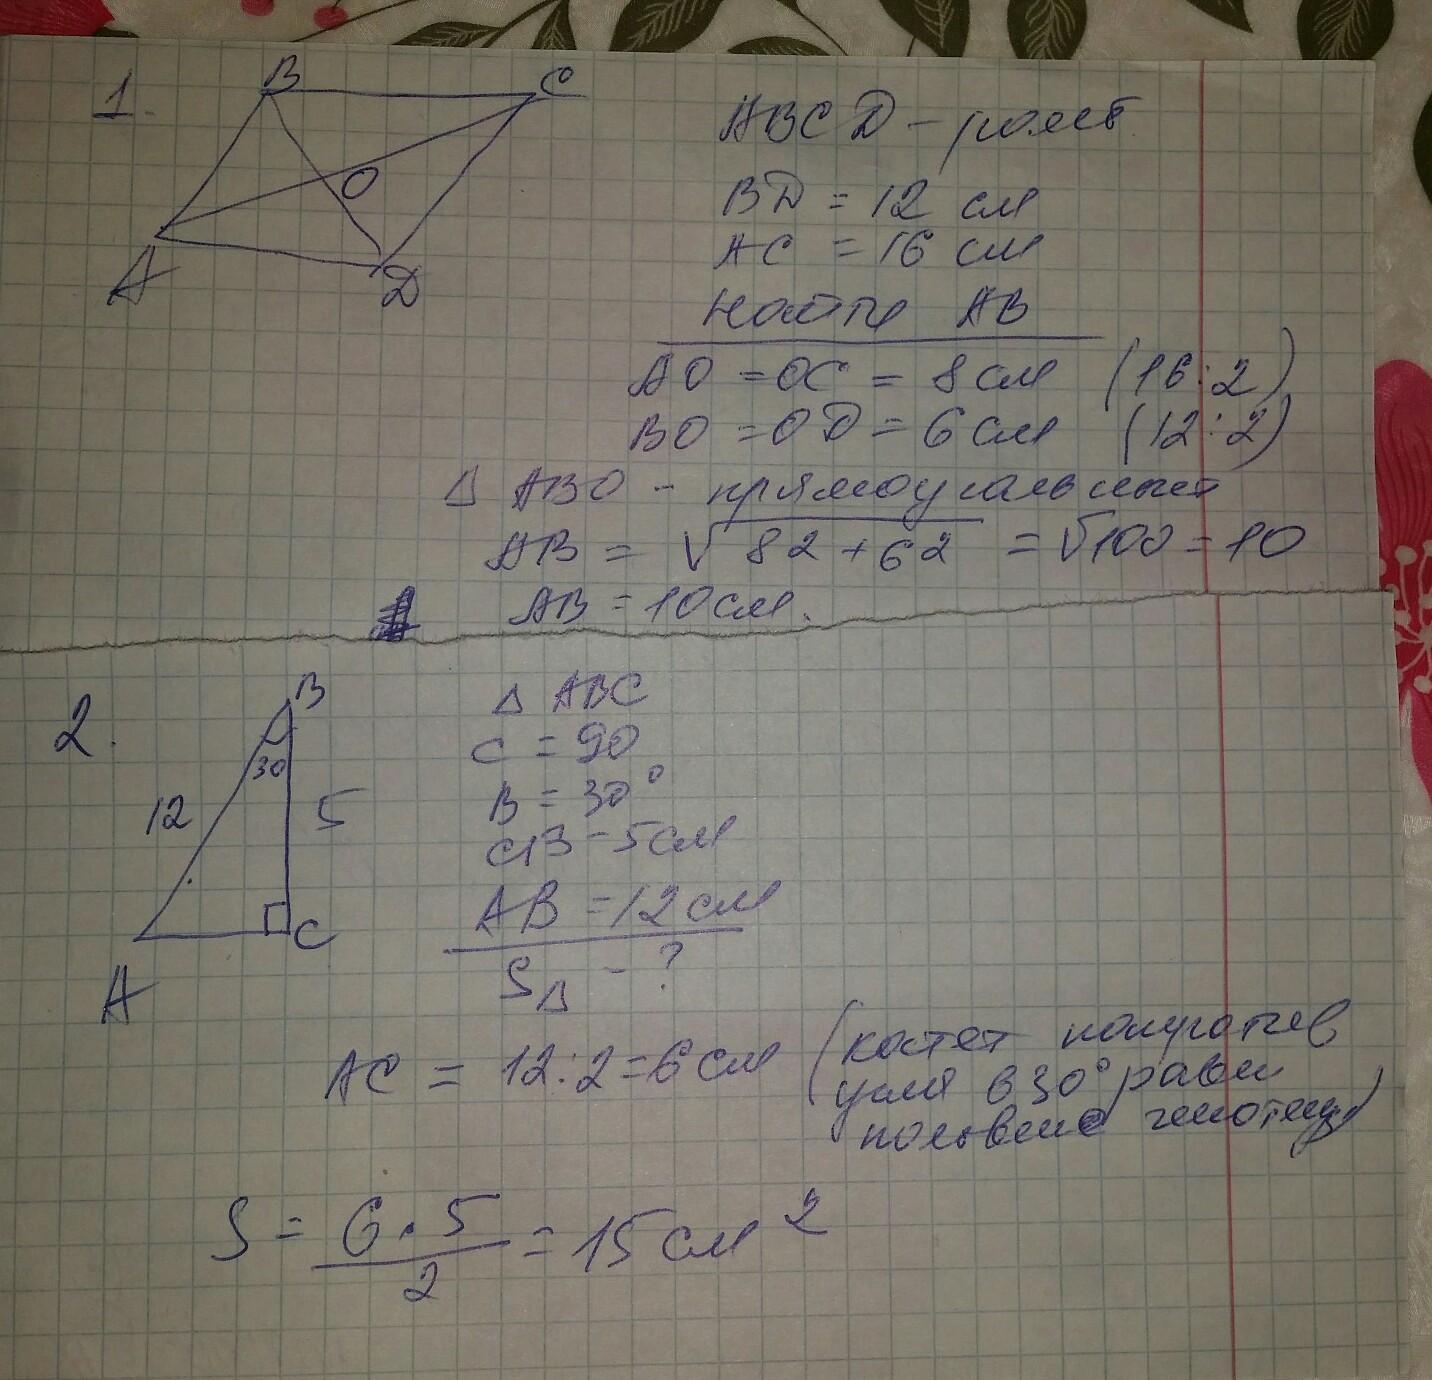 1.
B
C
O
A
D
ABCD - ромб
BD = 12 см
AC = 16 см
найти AB
AO = OC = 8 см (16:2)
BO = OD = 6 см (12:2)
Δ ABO - прямоугольный
AB = √82+62 = √100 = 10
AB = 10 см.
2.
B
30
12
5
C
A
Δ ABC
C = 90
B = 30°
CB - 5 см
AB = 12 см
SΔ - ?
AC = 12:2=6 см (катет
угла в 30° равен
половине
S = 6·5
2
= 15 см 2